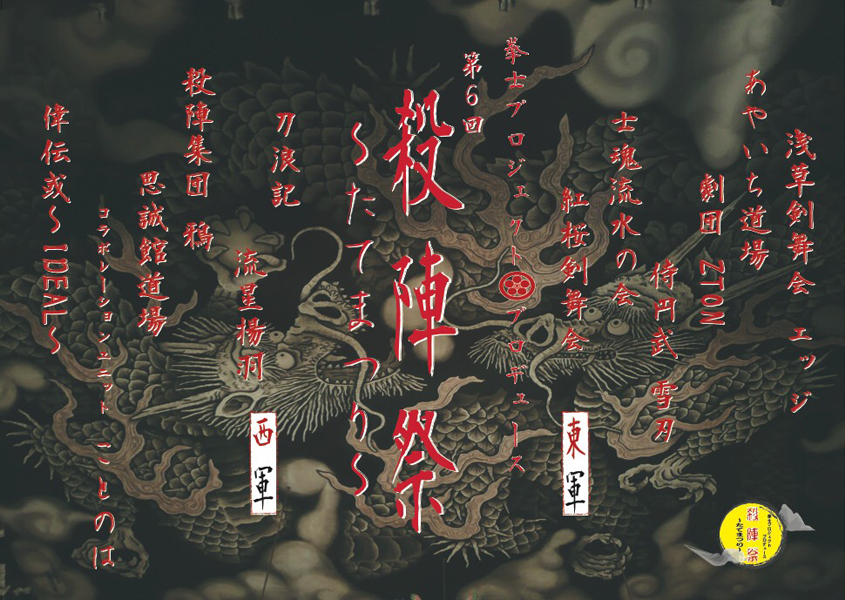 浅草剣舞会 エッジ
あやいち道場
劇団 ZTON
侍円武 雪刃
士魂流水の会
紅桜剣舞会
東軍
拳士プロジェクト プロデュース
第6回
殺陣祭
～たてまつり～
刀浪記
流星揚羽
西軍
殺陣集団 鴉
思誠館道場
コラボレーションユニット ことのは
偉伝或～IDEAL～
拳士プロジェクト
プロデュース
殺陣祭
～たてまつり～